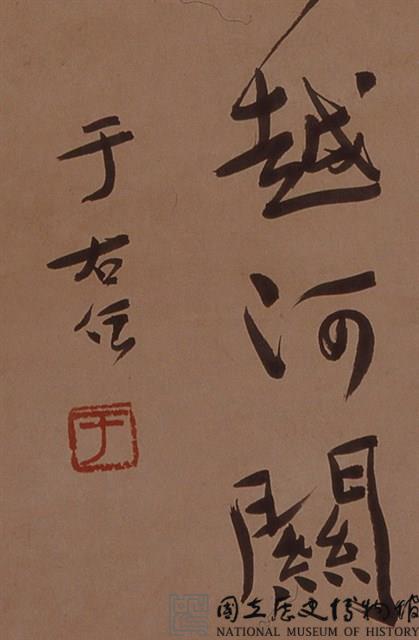 越河關
于右任
于
國立歷史博物館
NATIONAL MUSEUM OF HISTORY